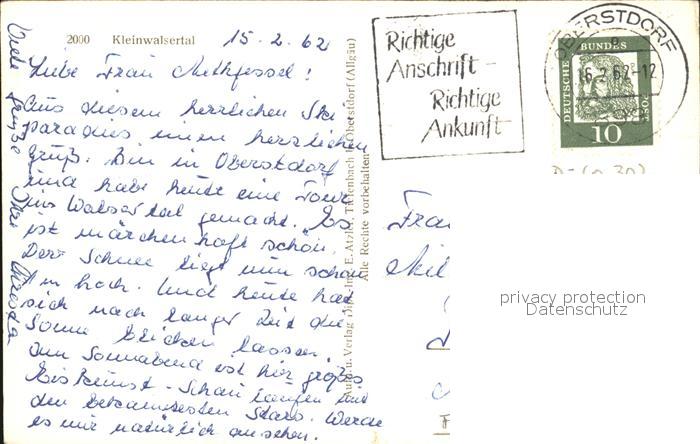 2000 Kleinwalsertal
15.2.62
Liebe Frau Methfessel!
Aus diesem herrlichen Ski
paradies einen herzlichen
Gruß. Bin in Oberstdorf
und habe heute eine Tour
ins Walsertal gemacht. Es
ist märchenhaft schön.
Der Schnee liegt nun schon
m hoch. Und heute hat
sich nach langer Zeit die
Sonne blicken lassen.
Am Sonnabend ist hier großes
Eiskunst-Schau laufen mit
den bekanntesten Stars. Werde
es mir natürlich ansehen.
Viele Grüße
Ihre
Aufn. u. Verlag Dipl.-Ing. E. Atzler, Tiefenbach b. Oberstdorf (Allgäu)
Alle Rechte vorbehalten
Richtige
Anschrift -
Richtige
Ankunft
OBERSTDORF
16.2.62-12
DEUTSCHE BUNDESPOST
10
Frau
privacy protection
Datenschutz